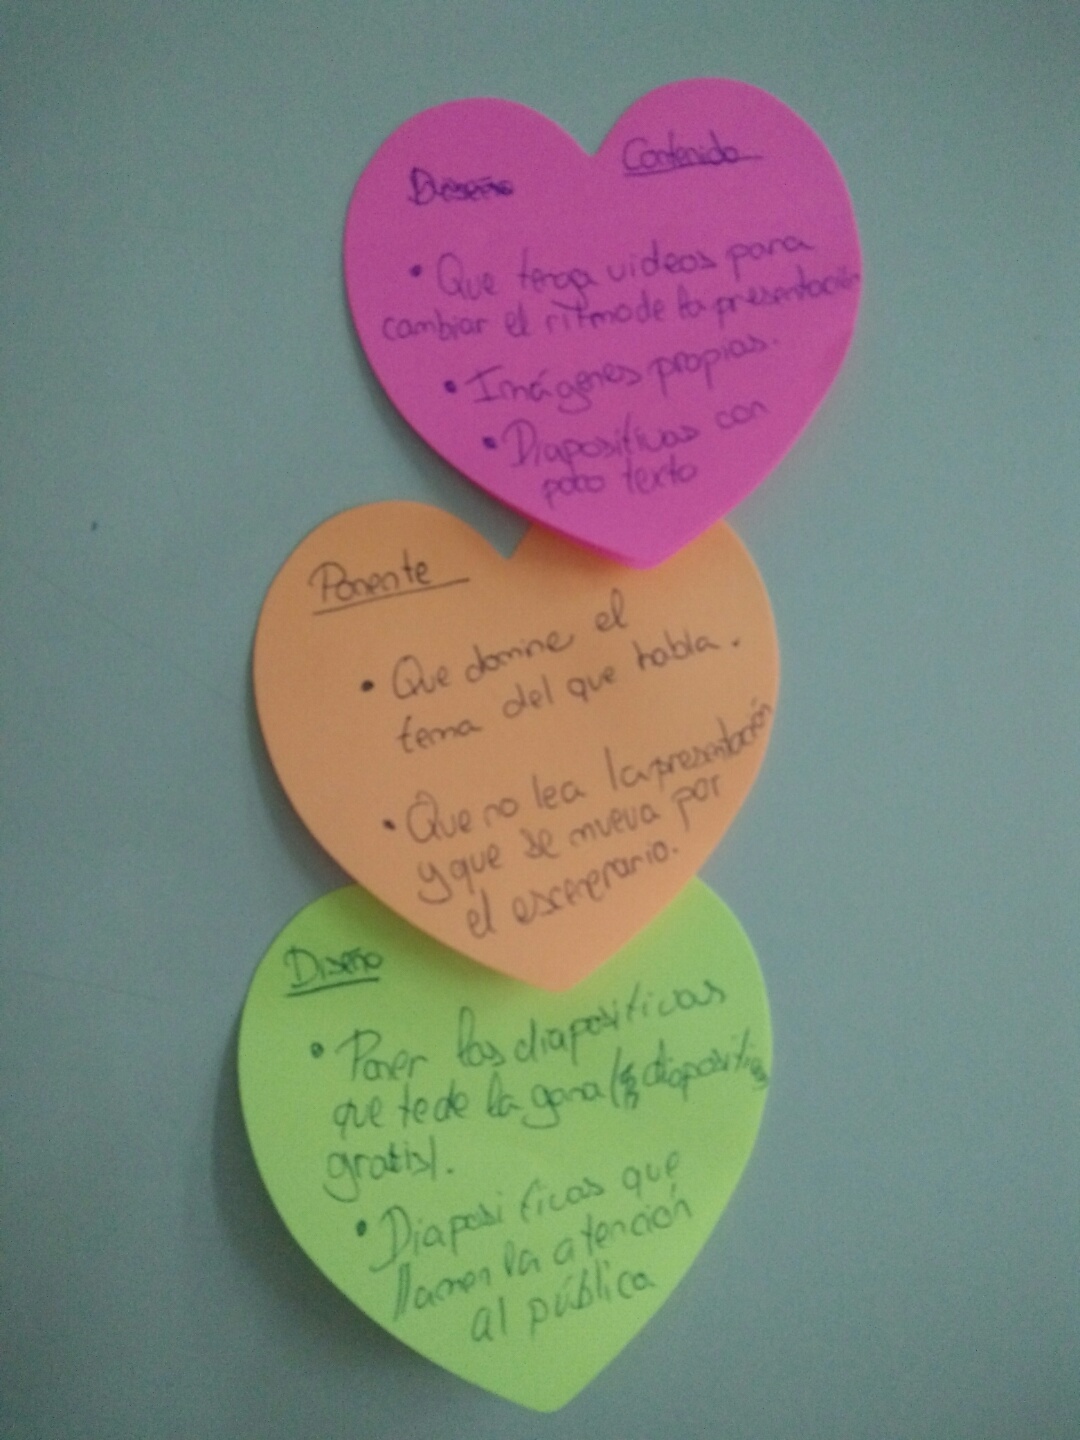 Diseño
Contenido
• Que tenga videos para
cambiar el ritmo de la presentación
• Imágenes propias.
• Diapositivas con
poco texto
Ponente
• Que domine el
tema del que habla.
• Que no lea la presentación
y que se mueva por
el escenario.
Diseño
• Poner las diapositivas
que te de la gana ( diapositivas
gratis).
• Diapositivas que
llamen la atención
al pública